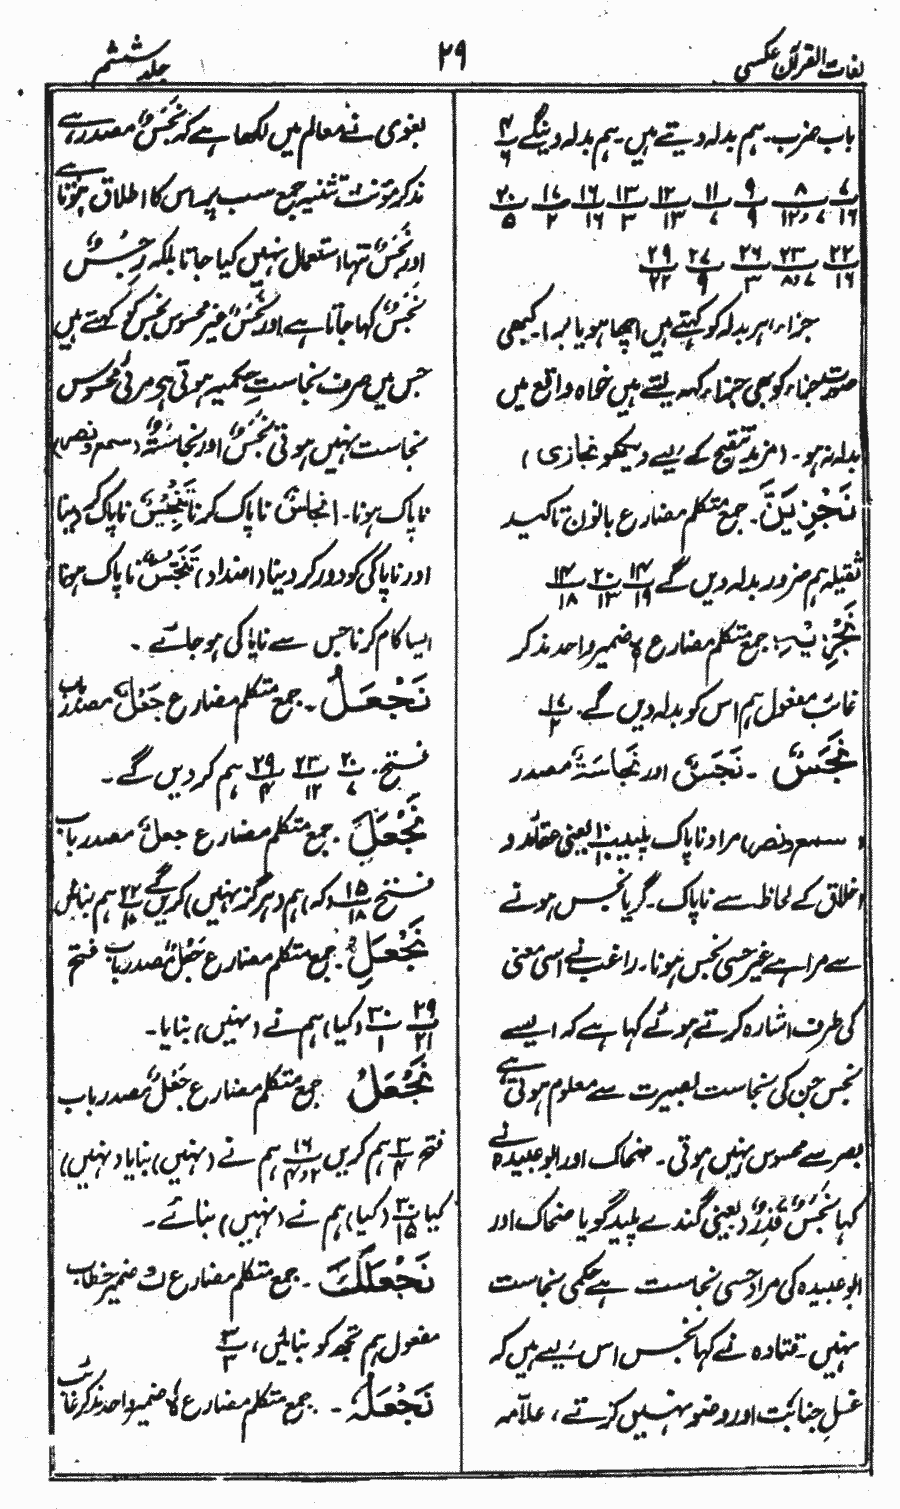 لغات القرآن عکسی
۲۹
جلد ششم
باب ضرب۔ ہم بدلہ دیتے ہیں۔ ہم بدلہ دینگے ۴/۶
۷/۱۶ ۸/۷ و ۱۲ ۹/۹ ۱۱/۷ ۱۲/۱۳ ۱۳/۳ ۱۶/۱۶ ۱۷/۲ ۲۰/۵
۲۲/۱۶ ۲۳/۷ و ۸ ۲۶/۳ ۲۷/۹ ۲۹/۲۲
جزاء، ہر بدلہ کو کہتے ہیں اچھا ہو یا برا۔ کبھی
صورت جزاء کو بھی جزاء کہہ لیتے ہیں خواہ واقع میں
بدلہ نہ ہو۔ (مزید تنقیح کے لیے دیکھو نجازی)
نَجْزِیَنَّ۔ جمع متکلم مضارع بانون تاکید
ثقیلہ ہم ضرور بدلہ دیں گے ۱۴/۱۹ ۲۰/۱۳ ۱۴/۱۸
نَجْزِیْہِ جمع متکلم مضارع ہ ضمیر واحد مذکر
غائب مفعول ہم اس کو بدلہ دیں گے۔ ۱۷/۲
نَجَسٌ۔ نَجَسٌ اور نَجَاسَۃٌ مصدر
(سمع و نصر) مراد ناپاک پلید ۱۰/۱۰ یعنی عقائد و
اخلاق کے لحاظ سے ناپاک۔ گویا نجس ہونے
سے مراد ہے غیر حسی نجس ہونا۔ راغب نے اسی معنی
کی طرف اشارہ کرتے ہوئے کہا ہے کہ ایسے
نجس جن کی نجاست بصیرت سے معلوم ہوتی ہے
بصر سے محسوس نہیں ہوتی۔ ضحاک اور ابو عبیدہ نے
کہا نَجَسٌ قَذِرٌ (یعنی گندے پلید گویا ضحاک اور
ابو عبیدہ کی مراد حسی نجاست ہے حکمی نجاست
نہیں۔ قتادہ نے کہا نجس اس لیے ہیں کہ
غسل جنابت اور وضو نہیں کرتے، علامہ
بغوی نے معالم میں لکھا ہے کہ نَجَسٌ مصدر ہے،
مذکر مؤنث تثنیہ جمع سب پر اس کا اطلاق ہوتا ہے
اور نَجَسٌ تنہا استعمال نہیں کیا جاتا بلکہ رِجْسٌ
نَجَسٌ کہا جاتا ہے اور نَجَسٌ غیر محسوس نجس کو کہتے ہیں
جس میں صرف نجاستِ حکمیہ ہوتی ہو مرئی محسوس
نجاست نہیں ہوتی نَجَسٌ اور نَجَاسَۃٌ (سمع و نصر)
ناپاک ہونا۔ اِنجَاسٌ ناپاک کرنا تَنْجِیْسٌ ناپاک کر دینا
اور ناپاکی کو دور کر دینا (اضداد) تَنَجُّسٌ ناپاک ہونا
ایسا کام کرنا جس سے ناپاکی ہو جائے۔
نَجْعَلُ۔ جمع متکلم مضارع جَعْلٌ مصدر باب
فتح۔ ۲۰/۷ ۲۳/۱۲ ۲۹/۴ ہم کر دیں گے۔
نَجْعَلَ۔ جمع متکلم مضارع جعل مصدر باب
فتح ۱۵/۱۸ (کہ) ہم (ہرگز نہیں) کریں گے ۲۲/۱۸ ہم بنائیں
نَجْعَلِ۔ جمع متکلم مضارع جَعْلٌ مصدر باب فتح
۲۹/۲۱ ۳۰/۱ (کیا) ہم نے (نہیں) بنایا۔
نَجْعَلْ جمع متکلم مضارع جَعْلٌ مصدر باب
فتح ۳/۱۴ ہم کریں ۱۶/۲ و ۴ ہم نے (نہیں) بنایا (نہیں)
کیا ۳۰/۱۵ (کیا) ہم نے (نہیں) بنائے۔
نَجْعَلَکَ۔ جمع متکلم مضارع کَ ضمیر خطاب
مفعول ہم تجھ کو بنائیں، ۳/۳
نَجْعَلَہٗ۔ جمع متکلم مضارع ہ ضمیر واحد مذکر غائب